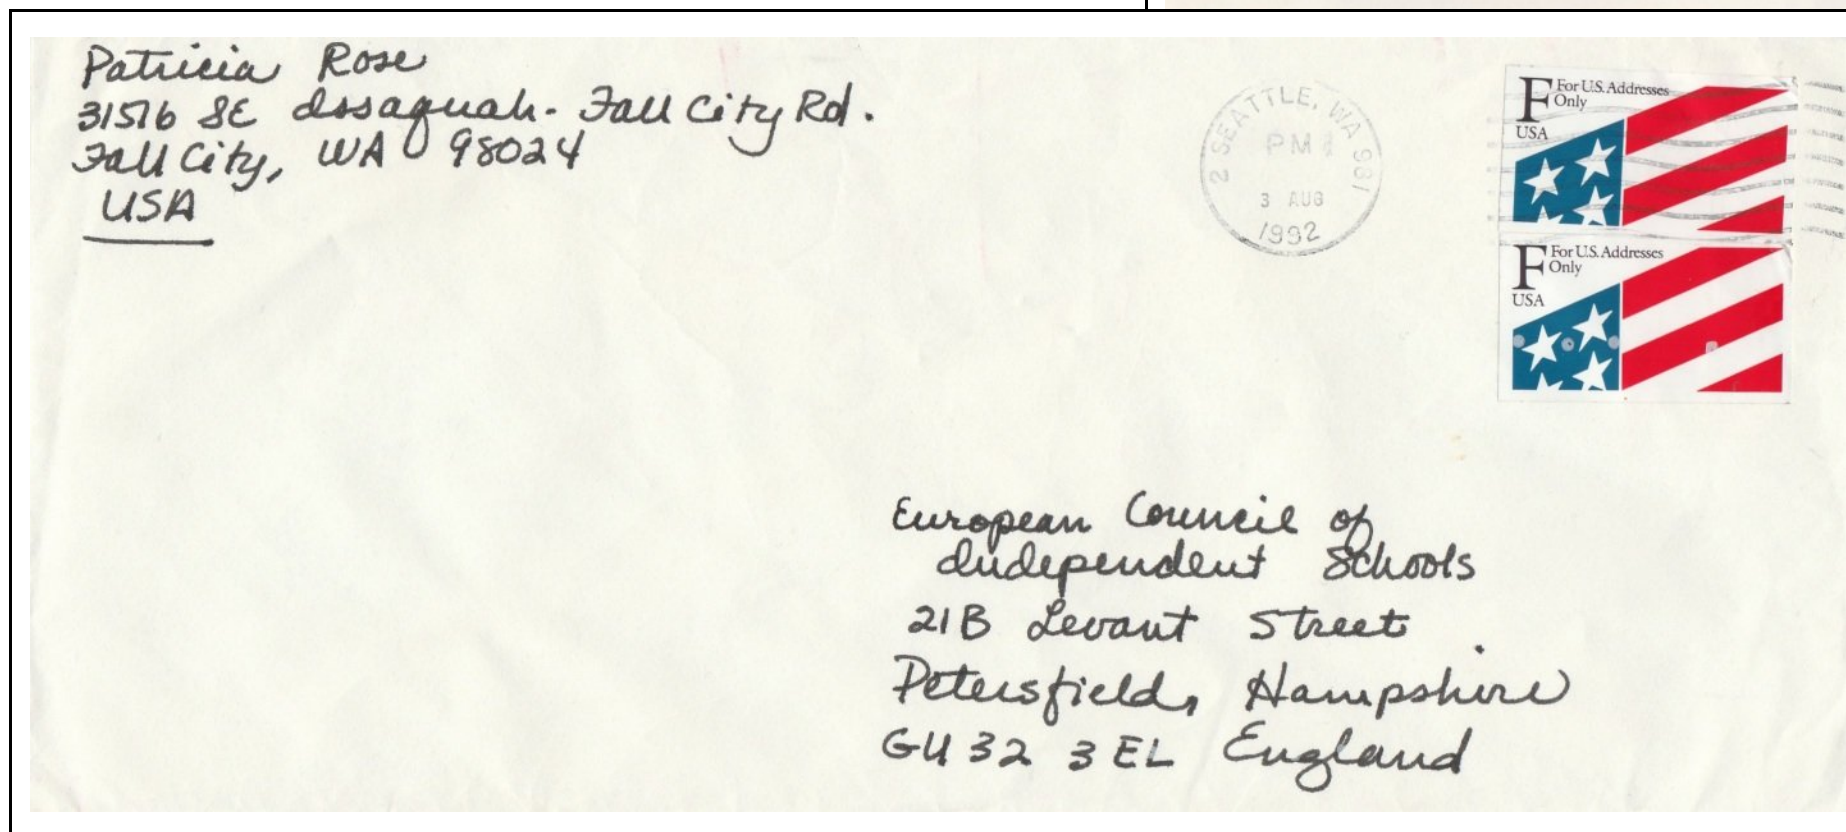 Patricia Rose
31516 SE Issaquah-Fall City Rd.
Fall City, WA 98024
USA
2 SEATTLE, WA 981
PM
3 AUG
1992
F For U.S. Addresses
Only
USA
F For U.S. Addresses
Only
USA
European Council of
Independent Schools
21B Levant Street
Petersfield, Hampshire
GU32 3EL England